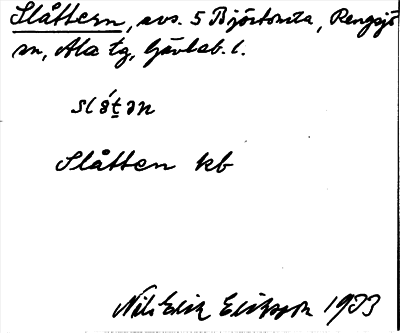 Slåttern, avs. 5 Björtomta, Rengsjö
sn, Ala tg, Gävleb. l.
slǻt̠ən
Slåtten kb
Nils Erik Eriksson 1933